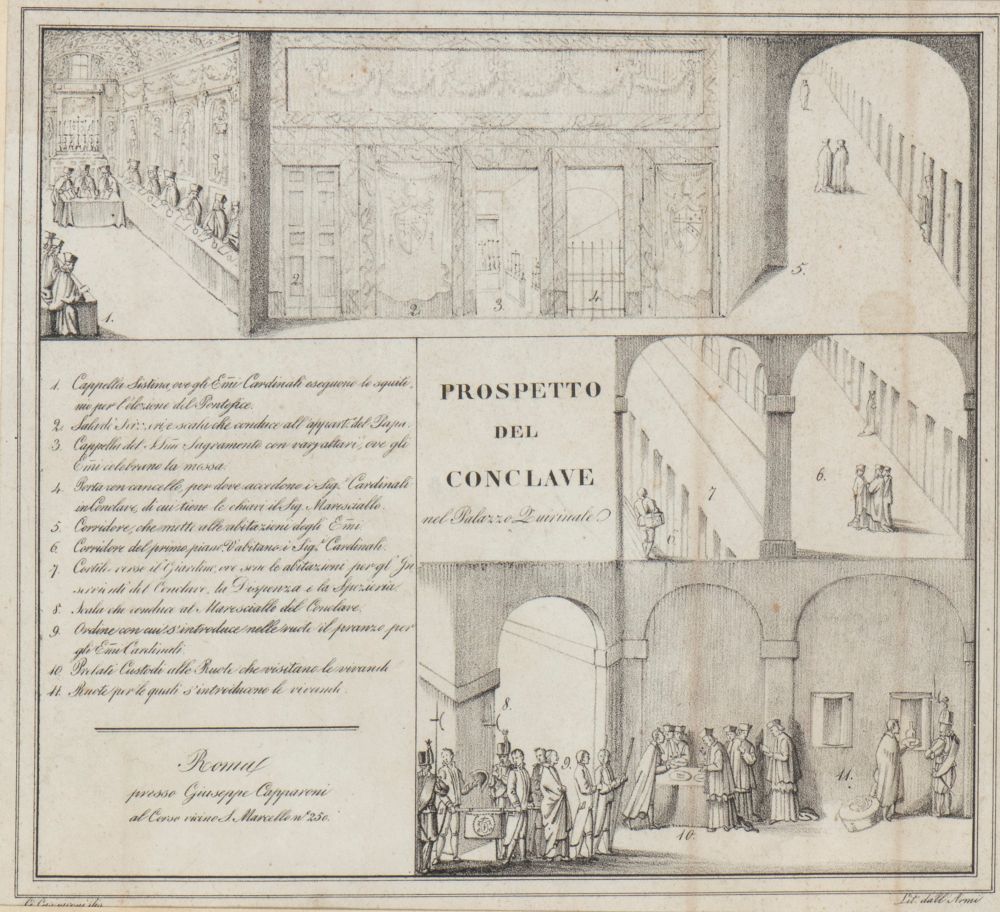 1.
2.
2.
3.
4.
5.
1. Cappella Sistina, ove gli Emi Cardinali eseguono lo squiti,
nio per l'elezione del Pontefice.
2. Sala di e scala che conduce all'appart: del Papa.
3 Cappella del SSm Sagramento con varj altari, ove gli
Emi celebrano la messa.
4 Porta con cancello, per dove accedono i Sig.i Cardinali
in Conclave, di cui tiene le chiavi il Sig. Maresciallo.
5 Corridore, che mette alle abitazioni degli Emi.
6 Corridore del primo piano abitano i Sig.i Cardinali.
7 Cortile verso il Giardino, ove sono le abitazioni per gl' In
servienti del Conclave, la Dispenza e la Spezieria.
8. Scala che conduce al Maresciallo del Conclave.
9. Ordine con cui s'introduce nelle ruote il pranzo per
gli Emi Cardinali.
10 Prelati Custodi alle Ruote che visitano le vivande
11. Ruote per le quali s'introducono le vivande.
PROSPETTO
DEL
CONCLAVE
nel Palazzo Quirinale
7
6.
8.
9.
10.
11.
Roma
presso Giuseppe Capparoni
al Corso vicino S. Marcello n.º 250.
G. Capparoni dis.
Lit. dall' Armi